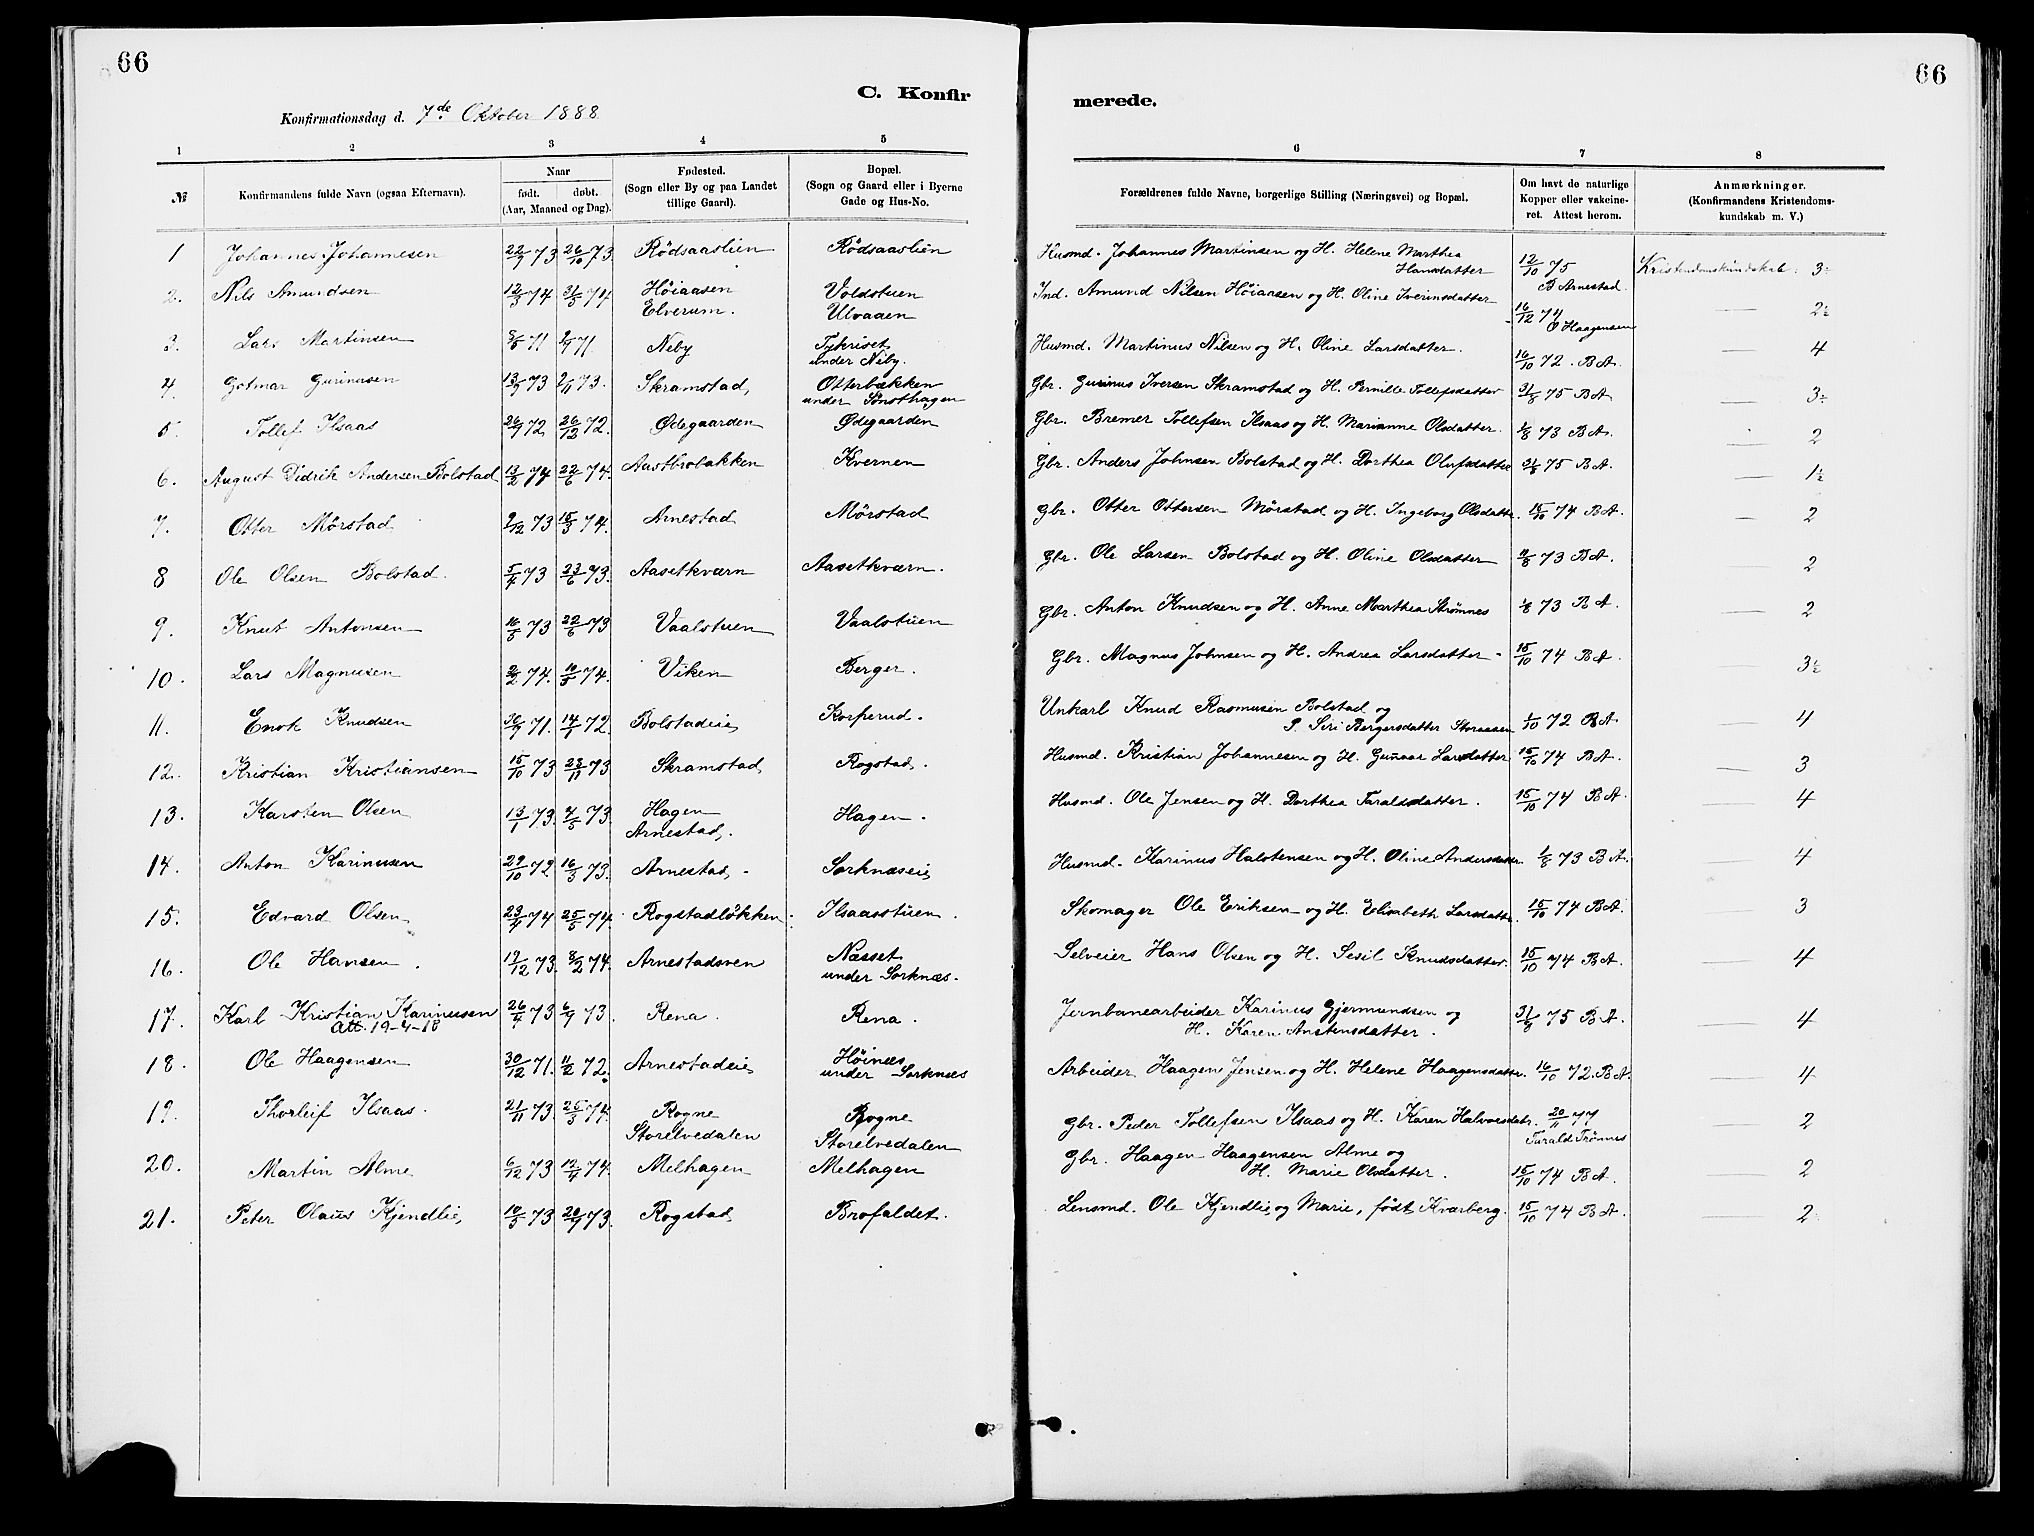 66
66
C. Konfirmerede.
Konfirmationsdag d. 7de Oktober 1888
1 2 3 4 5 6 7 8
№
Konfirmandens fulde Navn (ogsaa Efternavn).
Naar
født. døbt.
(Aar, Maaned og Dag).
Fødested.
(Sogn eller By og paa Landet
tillige Gaard).
Bopæl.
(Sogn og Gaard eller i Byerne
Gade og Hus-No.
Forældrenes fulde Navne, borgerlige Stilling (Næringsvei) og Bopæl.
Om havt de naturlige
Kopper eller vakcine-
ret. Attest herom.
Anmærkninger.
(Konfirmandens Kristendoms-
kundskab m. V.)
1 Johannes Johannesen 22/9 73 26/10 73 Rødsaaslien Rødsaaslien Husmd. Johannes Martinsen og H. Helene Marthea
Hansdatter 12/10 75 B Arnestad Kristendomskundskab: 3÷
2. Nils Amundsen 12/3 74 31/5 74 Høiaasen Voldstuen Ind. Amund Nilsen Høiaasen og H. Oline Iverinsdatter
Elverum. Ulvaaen 16/12 74 O Haagensen — 2½
3. Lars Martinsen 71 71 Neby Tykriset Husmd. Martinus Nilsen og H. Oline Larsdatter.
under Neby. 16/10 72. BA. — 4
4. Gotmar Gurinusen 13/9 73 2/11 73. Skramstad Otterbækken Gbr. Gurinus Iversen Skramstad og H. Pernille Tollefsdatter 31/8 75 BA — 3÷
under Sønsthagen
5. Tollef Ilsaas 26/9 72 26/12 72. Ødegaarden Ødegaarden Gbr. Bremer Tollefsen Ilsaas og H. Marianne Olsdatter. 1/8 73 BA. — 2
6. August Didrik Andersen Bolstad 13/2 74 22/6 74. Aastbrobakken Kvernen Gbr. Anders Johnsen Bolstad og H. Dorthea Olufsdatter 31/8 75 BA. — 1½
7. Otter Mørstad 9/12 73 15/3 74. Arnestad Mørstad Gbr. Otter Ottersen Mørstad og H. Ingeborg Olsdatter. 15/10 74 BA. — 2
8 Ole Olsen Bolstad. 5/4 73 23/6 73. Aasetkværn Aasetkværn. Gbr. Ole Larsen Bolstad og H. Oline Olsdatter 73 BA. — 2
9. Knut Antonsen 16/5 73 22/6 73 Vaalstuen Vaalstuen Gbr. Anton Knudsen og H. Anne Marthea Strømnes 1/8 73 BA. — 2
10. Lars Magnusen 74. 10/5 74. Viken Berger. Gbr. Magnus Johnsen og H. Andrea Larsdatter 15/10 74 BA. — 3½
11. Enok Knudsen 30/9 71. 14/1 72. Bolstadeie Korperud. Unkarl Knud Rasmusen Bolstad og
P. Siri Bergersdatter Storaasen 1/10 72 BA. — 4
12. Kristian Kristiansen 15/10 73 23/11 73 Skramstad Rogstad. Husmd. Kristian Johannesen og H. Gunaar Larsdatter 15/10 74 BA. — 3
13. Karsten Olsen 13/1 73. 4/5 73. Hagen Hagen. Husmd. Ole Jensen og H. Dorthea Taraldsdatter. 15/10 74 BA. — 4
Arnestad.
14. Anton Karinusen 29/10 72. 16/3 73. Arnestad. Sorknæseie Husmd. Karinus Halstensen og H. Oline Andersdatter. 1/8 73 BA. — 4
15. Edvard Olsen 23/4 74 25/5 74. Rogstadløkken Ilsaasstuen. Skomager Ole Eriksen og H. Elisabeth Larsdatter. 15/10 74 BA. — 3
16. Ole Hansen. 17/12 73. 8/2 74. Arnestadsven Næsset Selveier Hans Olsen og H. Sesil Knudsdatter. 15/10 74 BA. — 4
under Sorknæs.
17. Karl Kristian Karinusen 26/4 73 6/7 73. Rena. Rena. Jernbanearbeider Karinus Gjermundsen og
Att. 19-4-18 H. Karen Anstensdatter. 31/9 75 BA. — 4
18. Ole Haagensen 30/12 71. 11/2 72. Arnestadeie Høinæs Arbeider Haagen Jensen og H. Helene Haagensdatter. 16/10 72. BA. — 4
under Sorknæs
19. Thorleif Ilsaas. 21/11 73. 25/3 74. Rogne Rogne Gbr. Peder Tollefsen Ilsaas og H. Karen Halvorsdatr. 20/11 77 — 2
Storelvedalen Storelvedalen Tarald Trønnes
20. Martin Alme 6/12 73 12/4 74. Melhagen Melhagen Gbr. Haagen Haagensen Alme og
H. Marie Olsdatter. 15/10 74 BA. — 2
21. Peter Olaus Kjendlie 10/5 73 20/7 73. Rogstad Brofaldet. Lensmd. Ole Kjendlie og Marie, født Kværberg. 15/10 74 BA. — 2